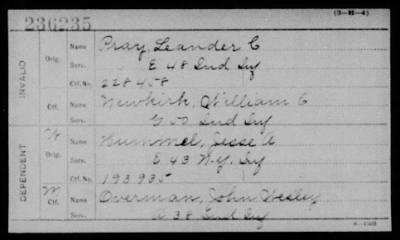 236235
(3-H-4)
INVALID
Orig. Name Pray, Leander C
Serv. E 48 Ind Inf
Ctf. No. 228458
Ctf. Name Newkirk, William C
Serv. G 50 Ind Inf
DEPENDENT
W Orig. Name Hummel, Jesse A
Serv. E 43 N.Y. Inf
Ctf. No. 193935
M Ctf. Name Overman, John Wesley
Serv. A 38 Ind Inf